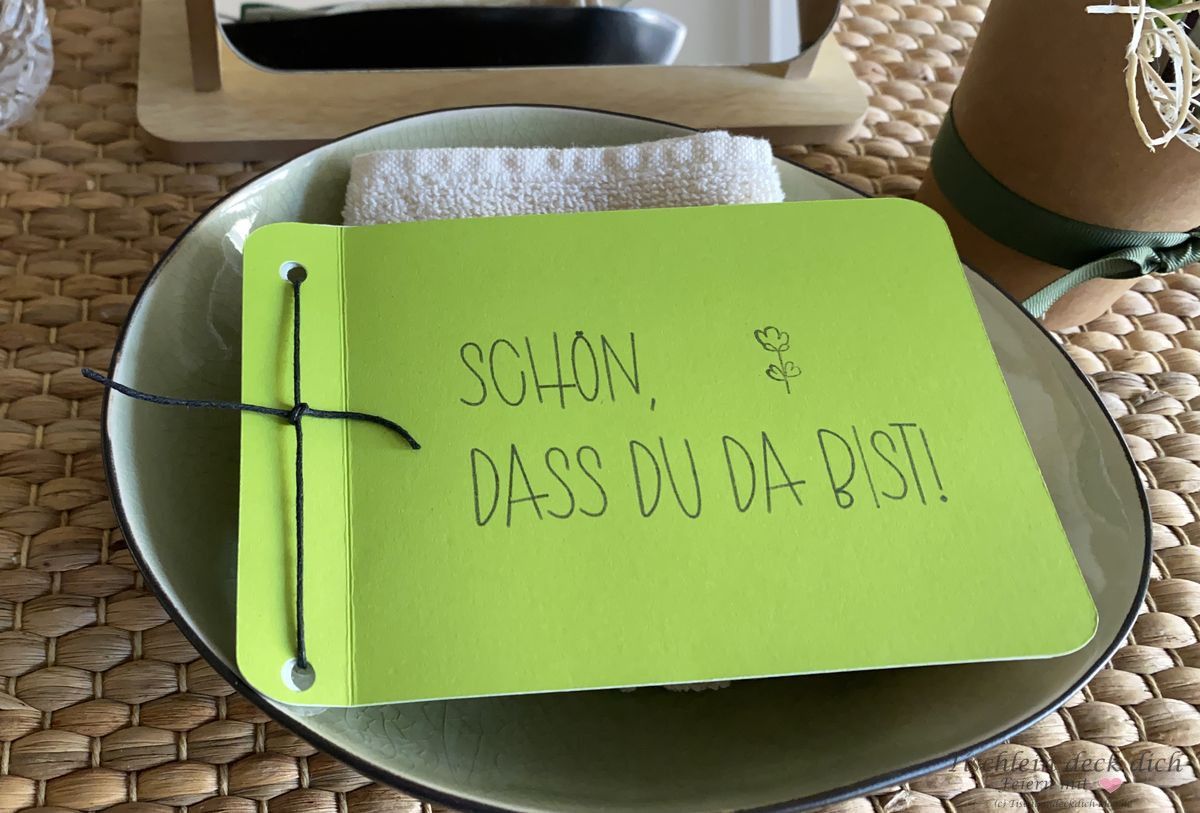 SCHÖN,
DASS DU DA BIST!
Tischlein deck dich
Feiern mit